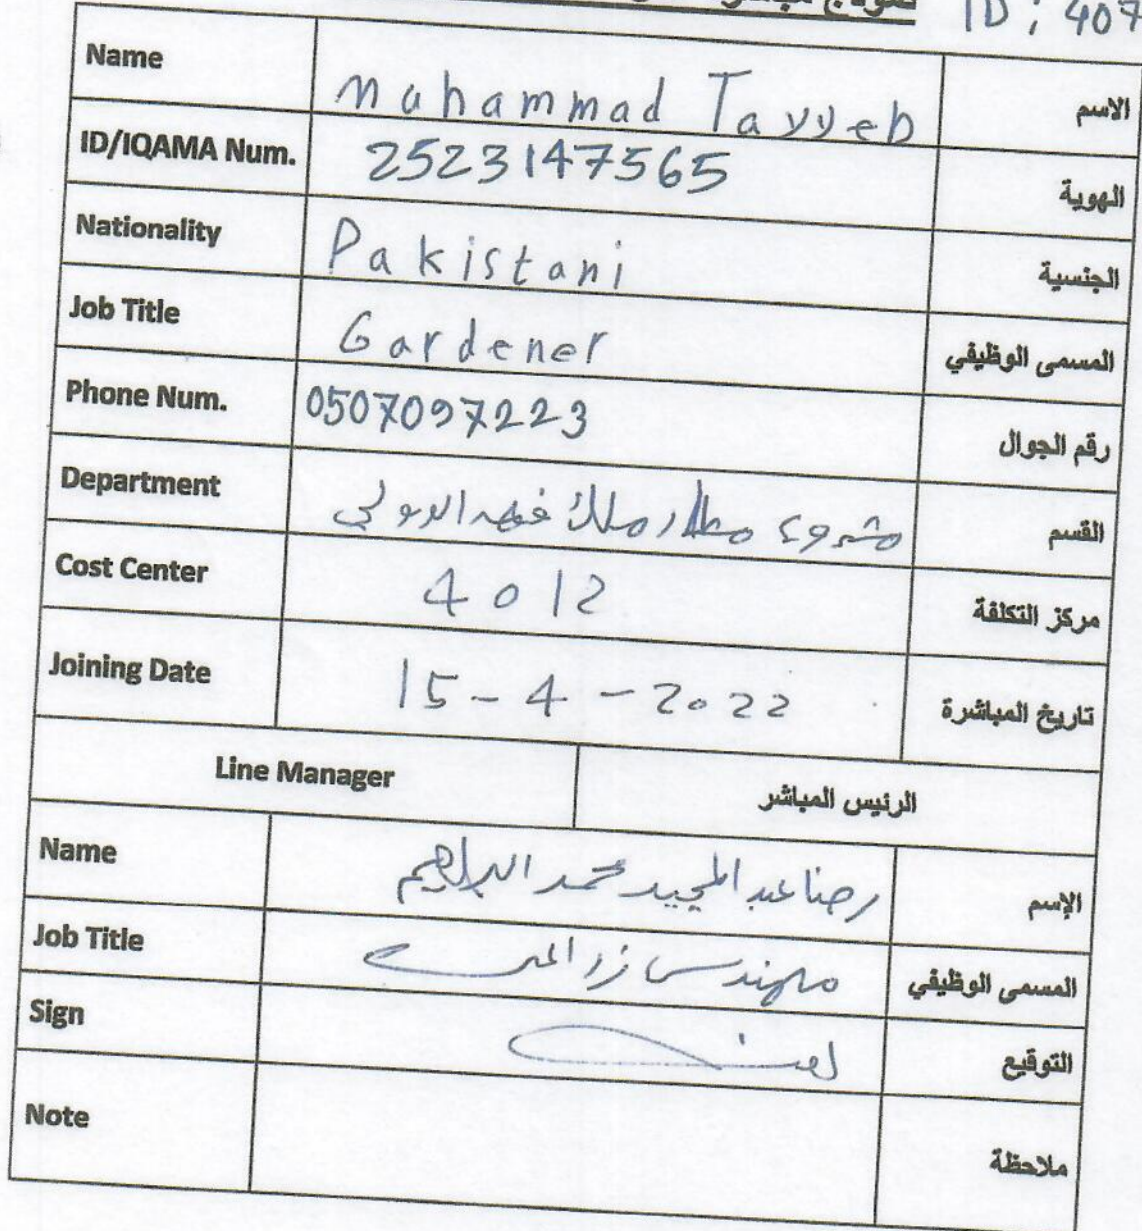 ID : 407
Name muhammad Tayyeb الاسم
ID/IQAMA Num. 2523147565 الهوية
Nationality Pakistani الجنسية
Job Title Gardener المسمى الوظيفي
Phone Num. 0507097223 رقم الجوال
Department مشروع مطار ملك فهد الدولي القسم
Cost Center 4012 مركز التكلفة
Joining Date 15-4-2022 تاريخ المباشرة
Line Manager الرئيس المباشر
Name رضا عبد المجيد محمد البراهيم الإسم
Job Title مهندس زراعي المسمى الوظيفي
Sign التوقيع
Note ملاحظة